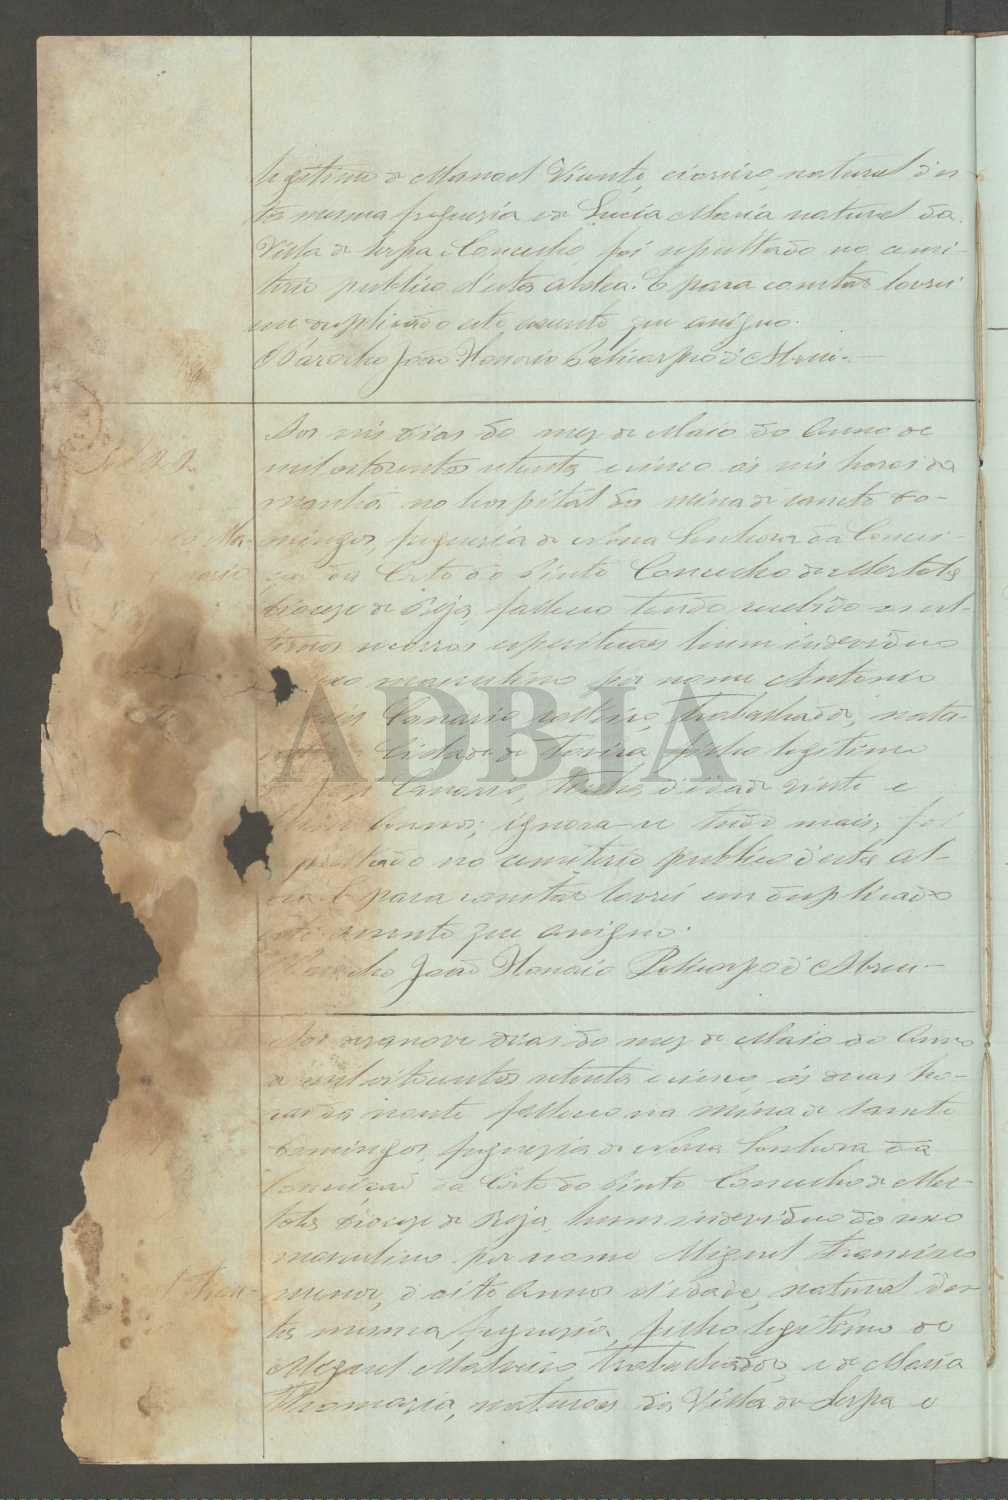 legitimo de Manoel Vicente, cioeiro, natural d'es-
ta mesma freguezia e de Lucia Maria natural da
Villa de Serpa e Concelho, foi sepultado no cemi-
terio publico d'esta aldea. E para constar lavrei
em duplicado este assento que assigno.
O Parocho João Honorio Policarpo d'Abreu.
Aos seis dias do mez de Maio do Anno de
mil oitocentos setenta e cinco ás seis horas da
manhã no hospital da mina de Sancto Do-
mingos, freguezia de Nossa Senhora da Concei-
ção da Corte do Pinto Concelho de Mertola
Diocese de Beja, falleceo tendo recebido os ul-
timos socorros espirituaes hum individuo
masculino por nome Antonio
Canario solteiro, trabalhador, natu-
Cidade de Tavira filho legitimo
José Canario, d'idade vinte e
annos, ignora-se tudo mais, foi
sepultado no cemiterio publico d'esta al-
dea. E para constar lavrei em duplicado
este assento que assigno.
Parocho João Honorio Policarpo d'Abreu
Aos dezanove dias do mez de Maio do Anno
de mil oitocentos setenta e cinco, ás duas ho-
ras da noute falleceo na mina de Sancto
Domingos, freguezia de Nossa Senhora da
Conceição da Corte do Pinto Concelho de Mer-
tola, Diocese de Beja, hum individuo do sexo
masculino por nome Miguel Francisco
menor, d'oito Annos d'idade, natural d'es-
ta mesma freguezia, filho legitimo de
Miguel trabalhador, e de Maria
Thomazia, naturaes da Villa de Serpa e
ADBJA